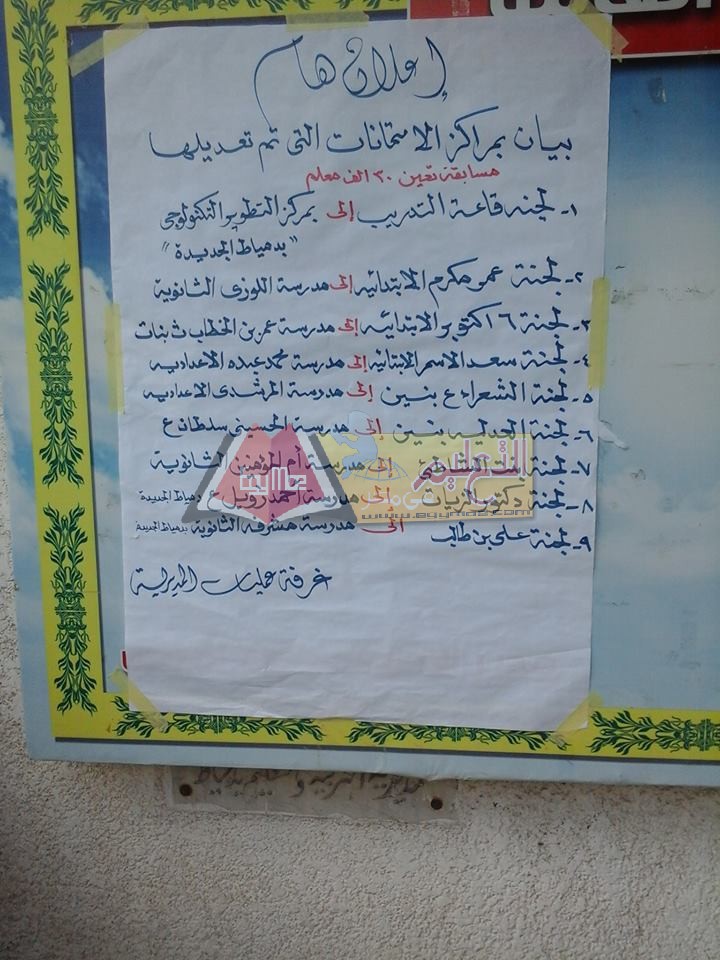 إعلان هام
بيان بمراكز الامتحانات التى تم تعديلها
مسابقة تعين ٣٠ الف معلم
١- لجنه قاعة التدريب إلى بمركز التطوير التكنولوجى
"بدمياط الجديدة"
٢- لجنة عمر مكرم الابتدائيه إلى مدرسة اللوزى الثانوية
٣- لجنة ٦ اكتوبر الابتدائيه إلى مدرسة عمر بن الخطاب ث بنات
٤- لجنة سعد الاسمر الابتدائيه إلى مدرسة محمد عبده الاعداديه
٥- لجنة الشعراء ع بنين إلى مدرسة المرشدى الاعداديه
٦- لجنة العدليه بنين إلى مدرسة الحسينى سلطان ع
٧- لجنة بنت الشاطئ إلى مدرسة أم المؤمنين الثانوية
٨- لجنة دكتور الزيات إلى مدرسة احمد زويل ع دمياط الجديدة
٩- لجنة على بن طالب إلى مدرسة مشرفه الثانوية بدمياط الجديدة
غرفة عمليات المديرية
التعليم
www.egymaz.com